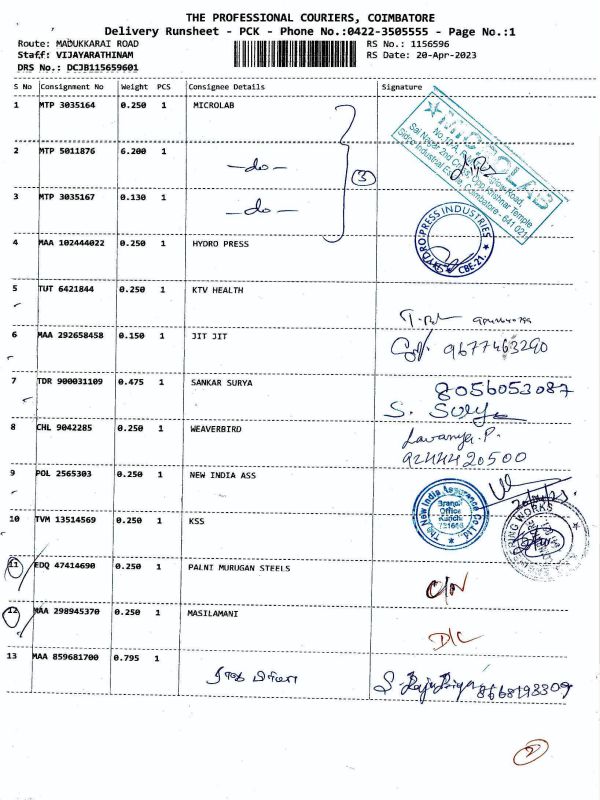 THE PROFESSIONAL COURIERS, COIMBATORE
Delivery Runsheet - PCK - Phone No.:0422-3505555 - Page No.:1
Route: MADUKKARAI ROAD RS No.: 1156596
Staff: VIJAYARATHINAM RS Date: 20-Apr-2023
DRS No.: DCJB115659601
S No Consignment No Weight PCS Consignee Details Signature
1 MTP 3035164 0.250 1 MICROLAB
2 MTP 5011876 6.200 1 -do-
3 MTP 3035167 0.130 1 -do-
3
4 MAA 102444022 0.250 1 HYDRO PRESS
HYDRO PRESS INDUSTRIES
CBE-21.
5 TUT 6421844 0.250 1 KTV HEALTH
6 MAA 292658458 0.150 1 JIT JIT 9677463290
7 TDR 900031109 0.475 1 SANKAR SURYA 8056053087
S. Surya
8 CHL 9042285 0.250 1 WEAVERBIRD Lavanya.P.
9244420500
9 POL 2565303 0.250 1 NEW INDIA ASS
The New India Assurance Co Ltd
Branch
Office
10 TVM 13514569 0.250 1 KSS
11 EDQ 47414690 0.250 1 PALNI MURUGAN STEELS C/N
12 MAA 298945370 0.250 1 MASILAMANI D/C
13 MAA 859681700 0.795 1 8668198309
2